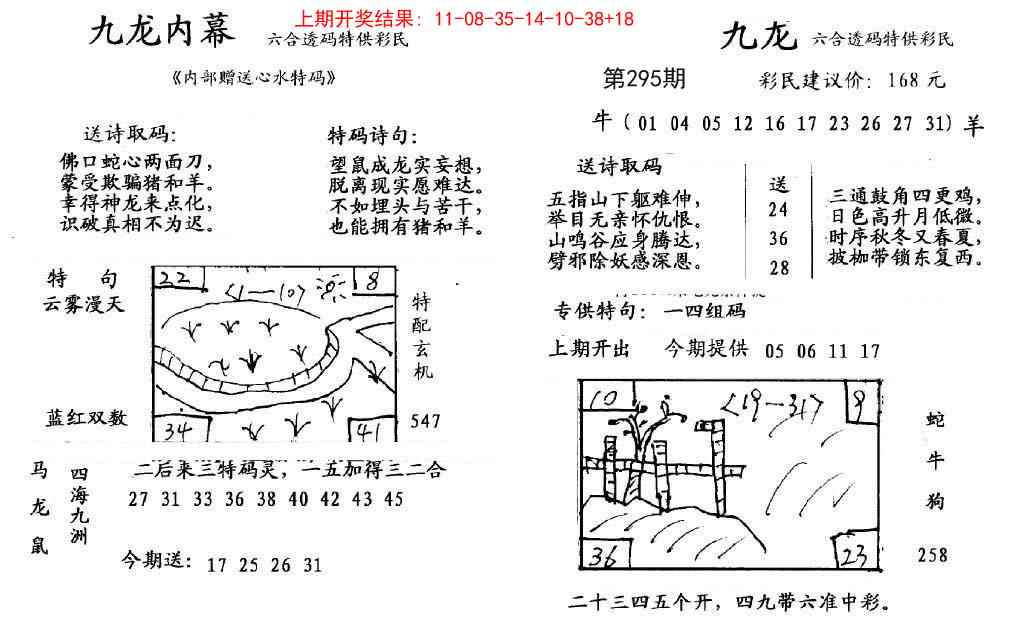 上期开奖结果：11-08-35-14-10-38+18
九龙内幕 六合透码特供彩民
《内部赠送心水特码》
送诗取码：
佛口蛇心两面刀，
蒙受欺骗猪和羊。
幸得神龙来点化，
识破真相不为迟。
特码诗句：
望鼠成龙实妄想，
脱离现实愿难达。
不如埋头与苦干，
也能拥有猪和羊。
特 句
云雾漫天
蓝红双数
22
8
<1—10>
34
41
特配玄机
547
马龙鼠
四海九洲
二后来三特码灵，一五加得三二合
27 31 33 36 38 40 42 43 45
今期送：17 25 26 31
九龙 六合透码特供彩民
第295期 彩民建议价：168元
牛（01 04 05 12 16 17 23 26 27 31）羊
送诗取码
五指山下躯难伸，
举目无亲怀仇恨。
山鸣谷应身腾达，
劈邪除妖感深恩。
送
24
36
28
三通鼓角四更鸡，
日色高升月低微。
时序秋冬又春夏，
披枷带锁东复西。
专供特句：一四组码
上期开出 今期提供 05 06 11 17
10
<19—31>
9
36
23
蛇
牛
狗
258
二十三四五个开，四九带六准中彩。